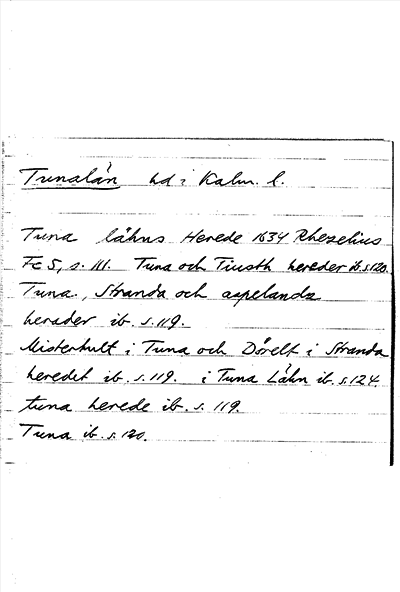 Tunalän hd i Kalm. l.
Tuna lähns Herede 1634 Rhezelius
Fc 5, s. 111. Tuna och Tiusth hereder ib. s. 120.
Tuna, Stranda och aspelanda
herader ib. s. 119.
Misterhult i Tuna och Dörelt i Stranda
heredet ib. s. 119. i Tuna Lähn ib. s. 124.
tuna herede ib. s. 119.
Tuna ib. s. 120.